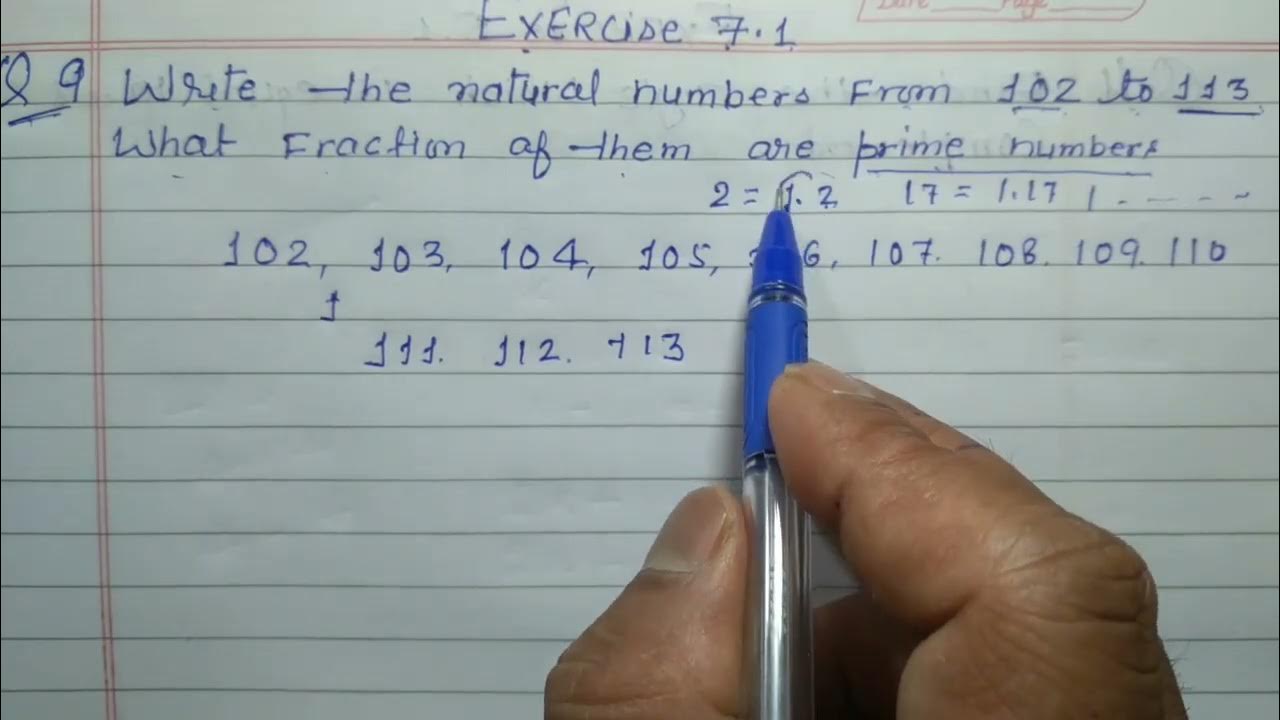 Date Page
Exercise 7.1
Q 9 Write the natural numbers from 102 to 113
What Fraction of them are prime numbers
2 = 1.2 17 = 1.17 1 - - - -
102, 103, 104, 105, 6, 107. 108. 109. 110
1
111. 112. 113